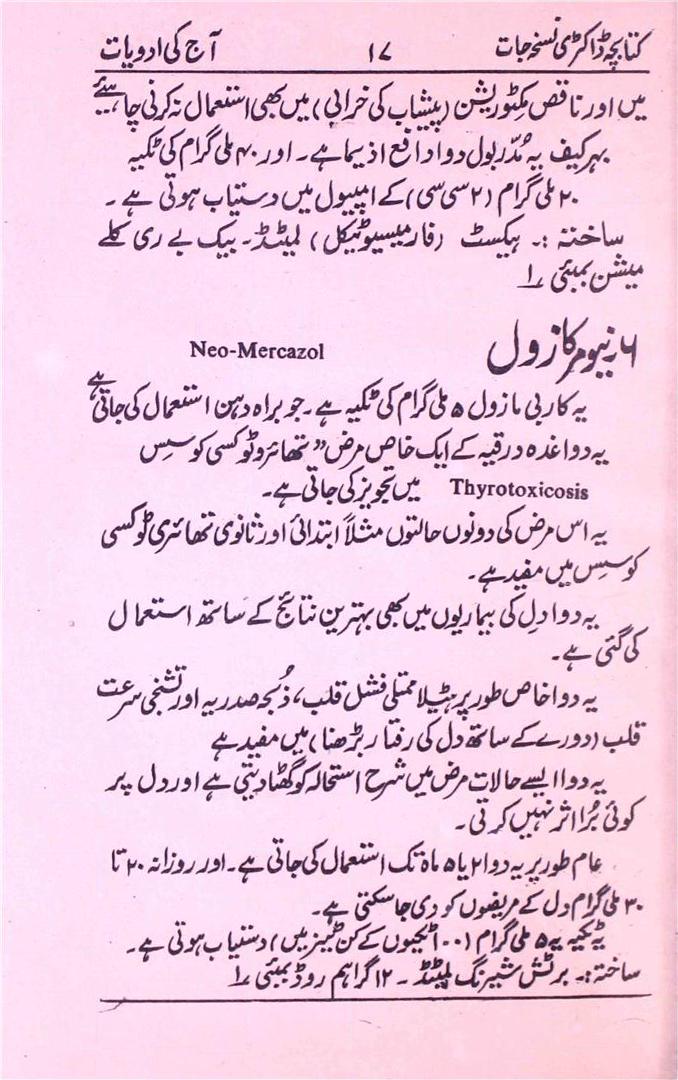 کتابچہ ڈاکٹری نسخہ جات ۱۷ آج کی ادویات
میں اور ناقص مِکٹوریشن (پیشاب کی خرابی) میں بھی استعمال نہ کرنی چاہیئے
بہرکیف یہ مُدّر بول دوا دافع اذیما ہے۔ اور ۴۰ ملی گرام کی ٹکیہ
۲۰ ملی گرام (۲ سی سی) کے ایمپیول میں دستیاب ہوتی ہے۔
ساختہ :۔ ہیکسٹ (فارمیسیوٹیکل) لمیٹڈ۔ بیک بے ری کلے
میشن بمبئی ۱
۶۔ نیومرکازول Neo-Mercazol
یہ کاربی مازول ۵ ملی گرام کی ٹکیہ ہے۔ جو براہ دہن استعمال کی جاتی ہے
یہ دوا غدہ درقیہ کے ایک خاص مرض "تھائروٹوکسی کوسِس
Thyrotoxicosis میں تجویز کی جاتی ہے۔
یہ اس مرض کی دونوں حالتوں مثلاً ابتدائی اور ثانوی تھائری ٹوکسی
کوسِس میں مفید ہے۔
یہ دوا دِل کی بیماریوں میں بھی بہترین نتائج کے ساتھ استعمال
کی گئی ہے۔
یہ دوا خاص طور پر ہٹیلا ممتلی فشل قلب، ذُبحہ صدریہ اور تشنجی سرعت
قلب (دورے کے ساتھ دل کی رفتار بڑھنا) میں مفید ہے
یہ دوا ایسے حالات مرض میں شرح استحالہ کو گھٹا دیتی ہے اور دل پر
کوئی بُرا اثر نہیں کرتی۔
عام طور پر یہ دوا ۲ یا ۵ ماہ تک استعمال کی جاتی ہے۔ اور روزانہ ۲۰ تا
۳۰ ملی گرام دل کے مریضوں کو دی جا سکتی ہے۔
یہ ٹکیہ یہ ۵ ملی گرام (۱۰۰ ٹکیوں کے کن ٹینرز میں) دستیاب ہوتی ہے۔
ساختہ:۔ برٹش شیرنگ لمیٹڈ۔ ۱۲ گراہم روڈ بمبئی ۱